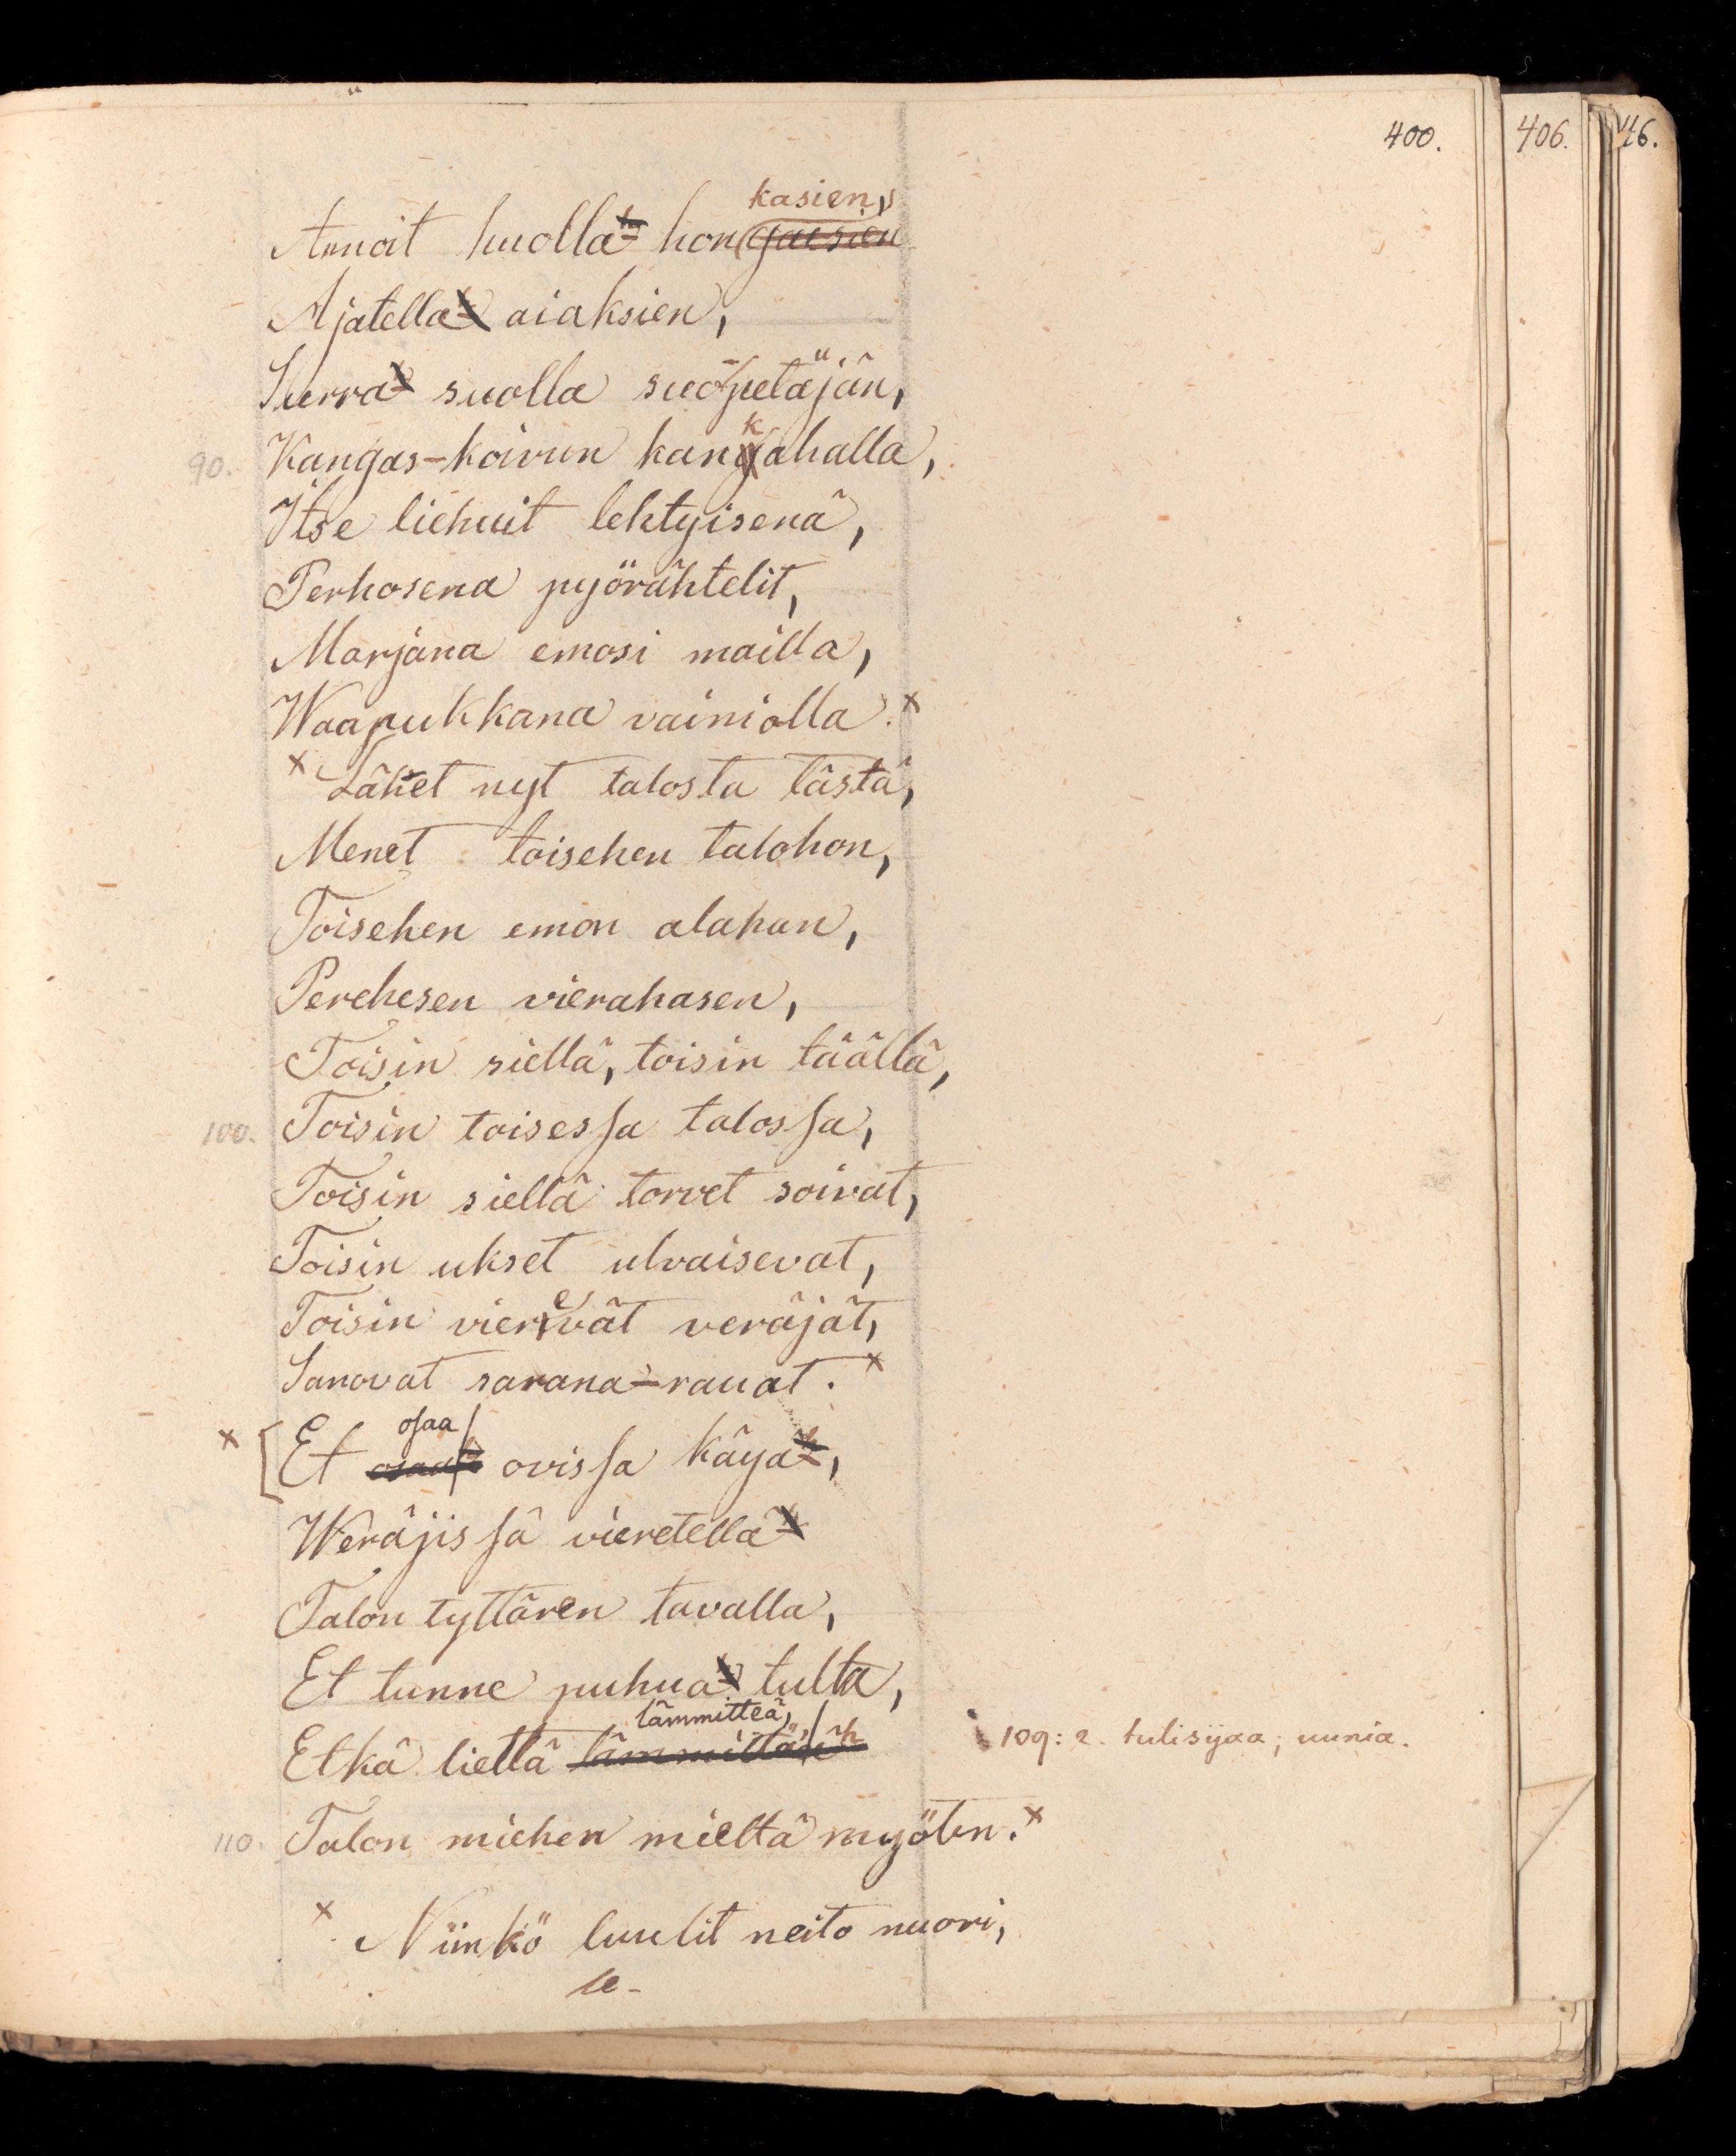 400.
406.
46.
kasien,
Annoit huollah hongaisien
Ajatellah aiaksien,
Surrah suolla suo-petäjän,
k
90. Kangas-koivun kangahalla,
Itse liehuit lehtyisenä,
Perhosena pyörähtelit,
Marjana emosi mailla,
Waapukkana vainiolla. x
x Lähet nyt talosta tästä,
Menet toisehen talohon,
Toisehen emon alahan,
Perehesen vierahasen,
Toisin siellä, toisin täällä,
100. Toisin toisessa talossa,
Toisin siellä torvet soivat,
Toisin ukset ulvaisevat,
e
Toisin vierivät veräjät,
Sanovat sarana-rauat. x
osaa
x [Et osaah ovissa käyäh,
Weräjissä vieretelläh
Talon tyttären tavalla,
Et tunne puhuah tulta,
lämmitteä,
Etkä liettä lämmittäih
109: 2. tulisijaa; uunia.
110. Talon miehen mieltä myöten. x
x Niinkö luulit neito nuori,
le-